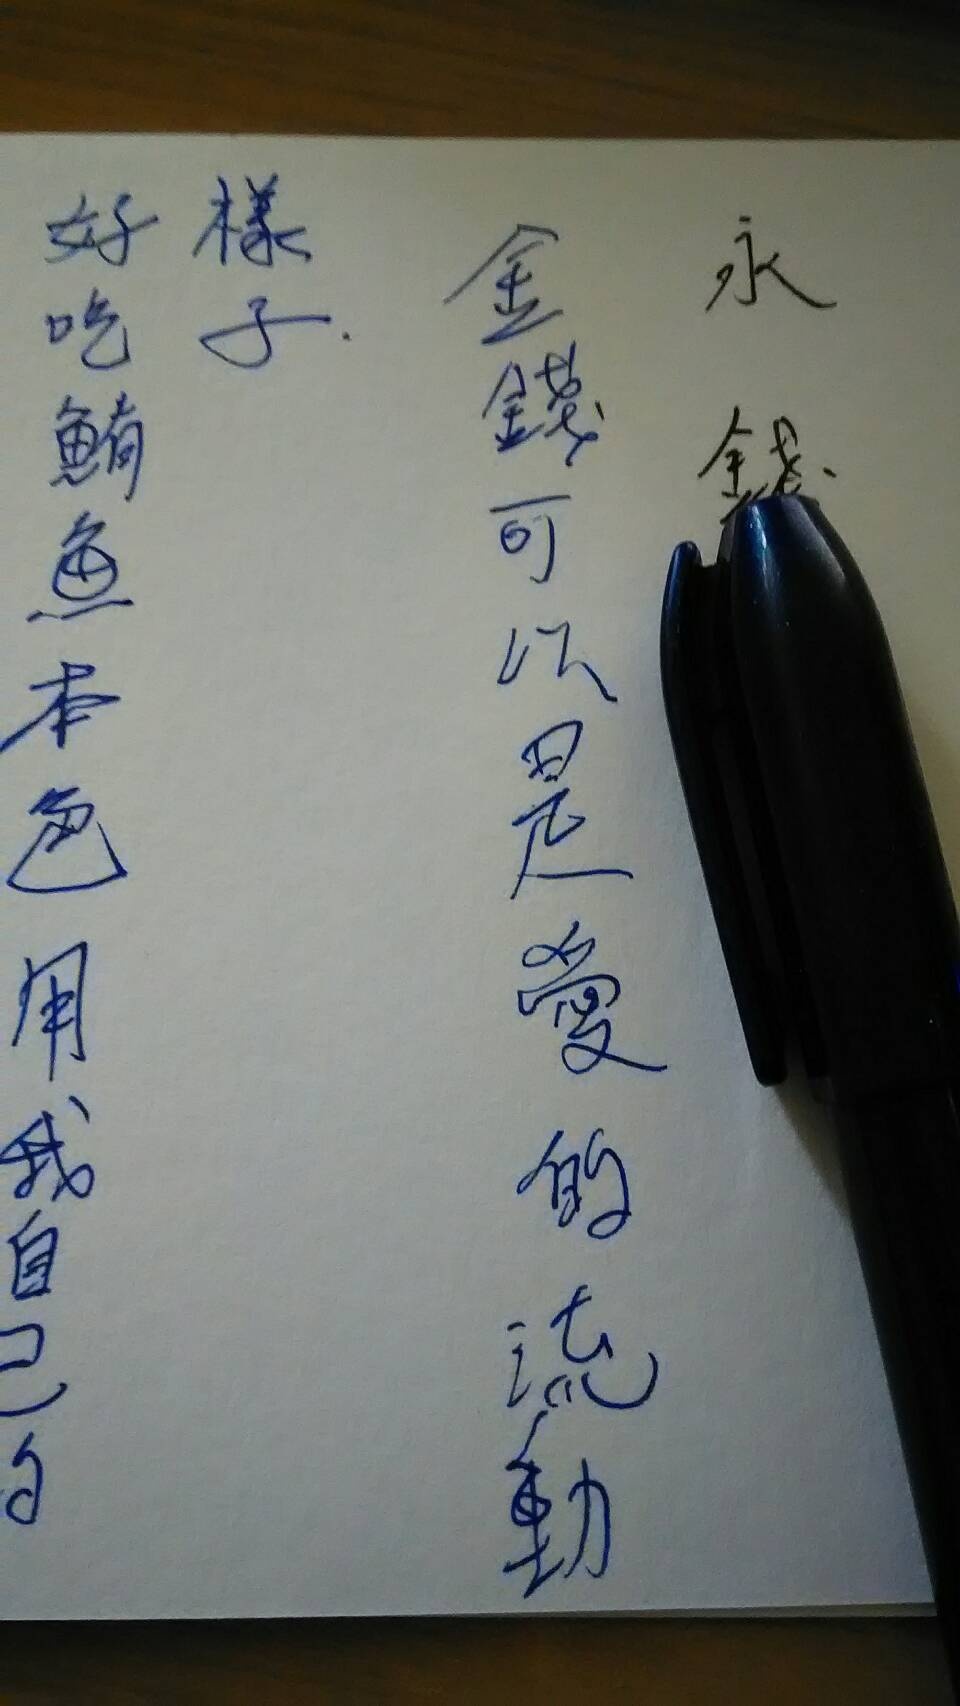 永
錢
金錢可以是愛的流動
樣子.
好吃鮪魚本色用我自己的